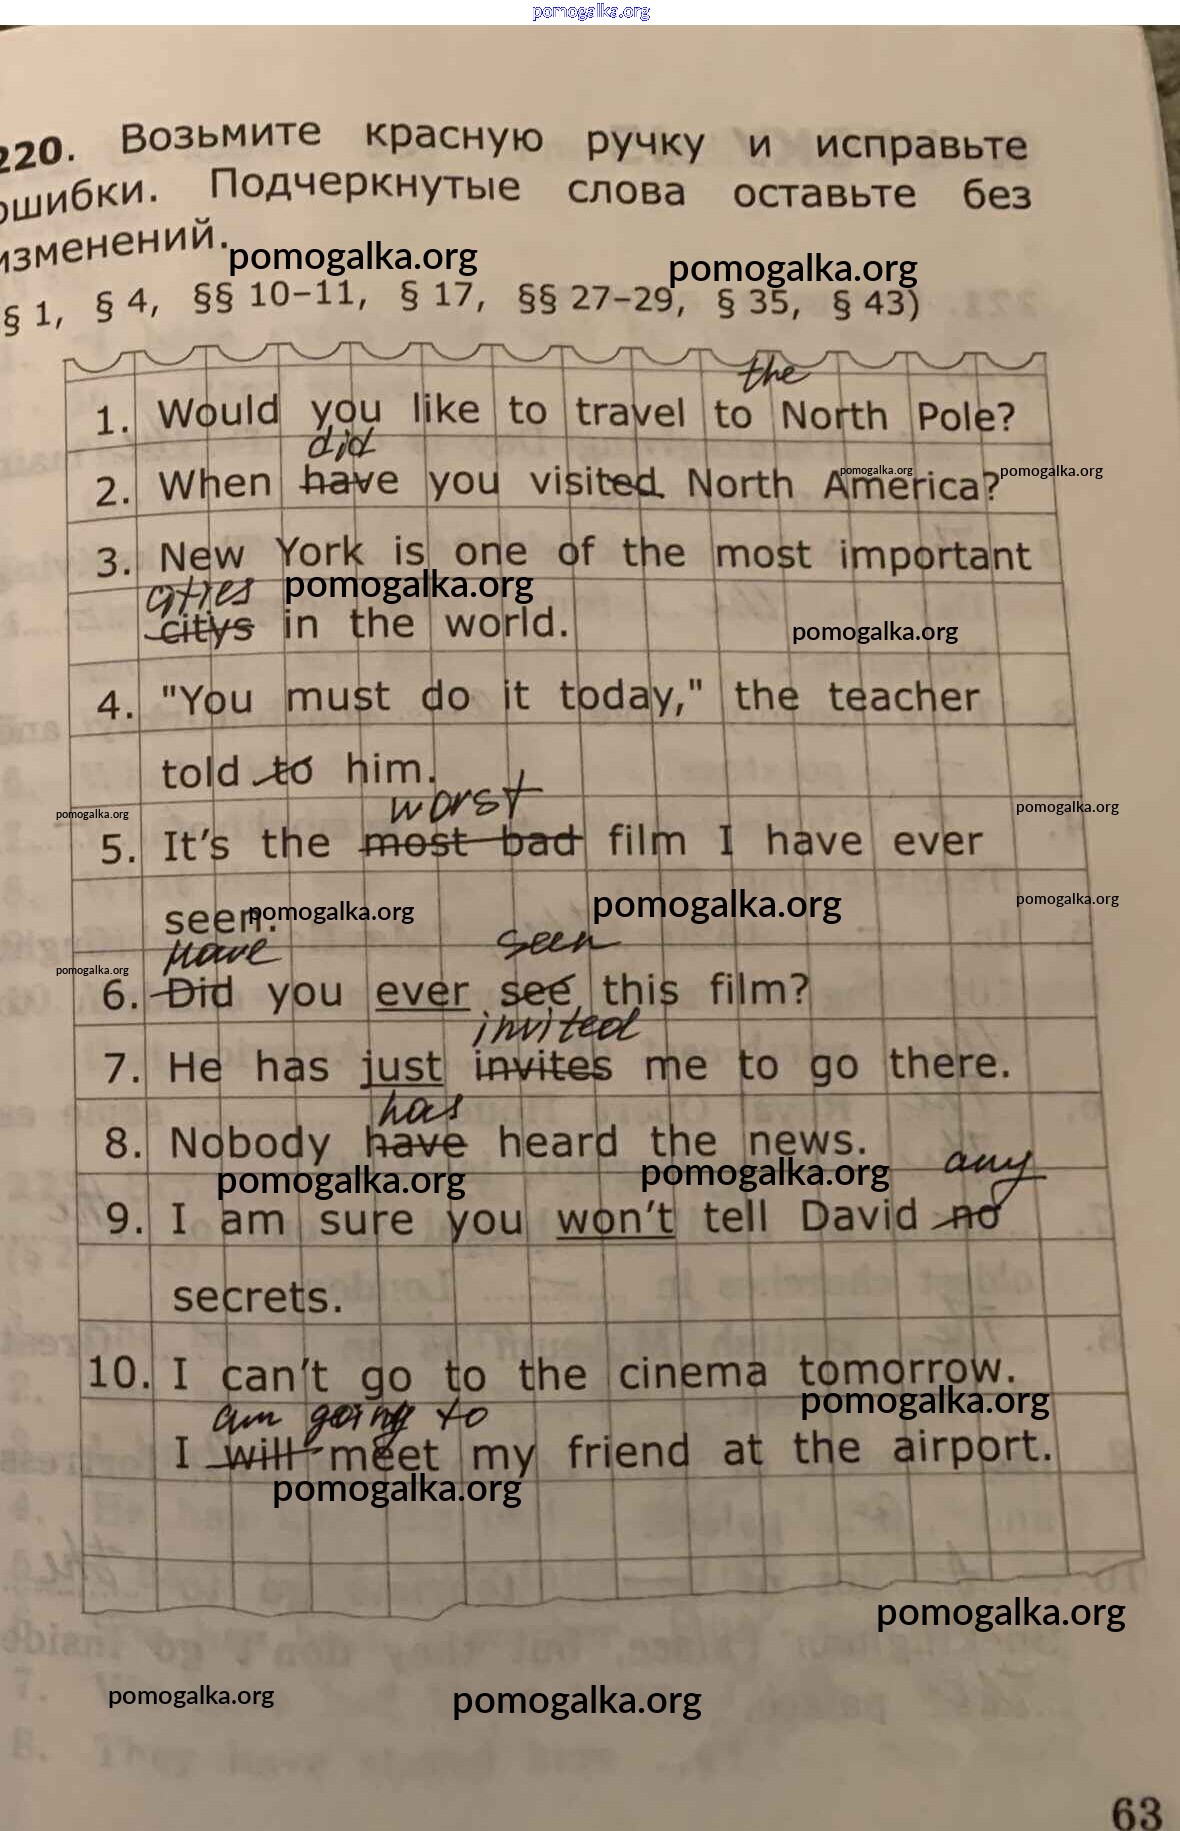 pomogalka.org
220. Возьмите красную ручку и исправьте
ошибки. Подчеркнутые слова оставьте без
изменений.
pomogalka.org pomogalka.org
§ 1, § 4, §§ 10–11, § 17, §§ 27–29, § 35, § 43)
the
1. Would you like to travel to North Pole?
did
2. When have you visited North America?
pomogalka.org pomogalka.org
3. New York is one of the most important
cities pomogalka.org
citys in the world.
pomogalka.org
4. "You must do it today," the teacher
told to him.
worst
pomogalka.org pomogalka.org
5. It's the most bad film I have ever
seen.
pomogalka.org pomogalka.org pomogalka.org
Have seen
pomogalka.org
6. Did you ever see this film?
invited
7. He has just invites me to go there.
has
8. Nobody have heard the news.
pomogalka.org pomogalka.org
any
9. I am sure you won't tell David no
secrets.
10. I can't go to the cinema tomorrow.
pomogalka.org
am going to
I will meet my friend at the airport.
pomogalka.org
pomogalka.org
pomogalka.org pomogalka.org
63